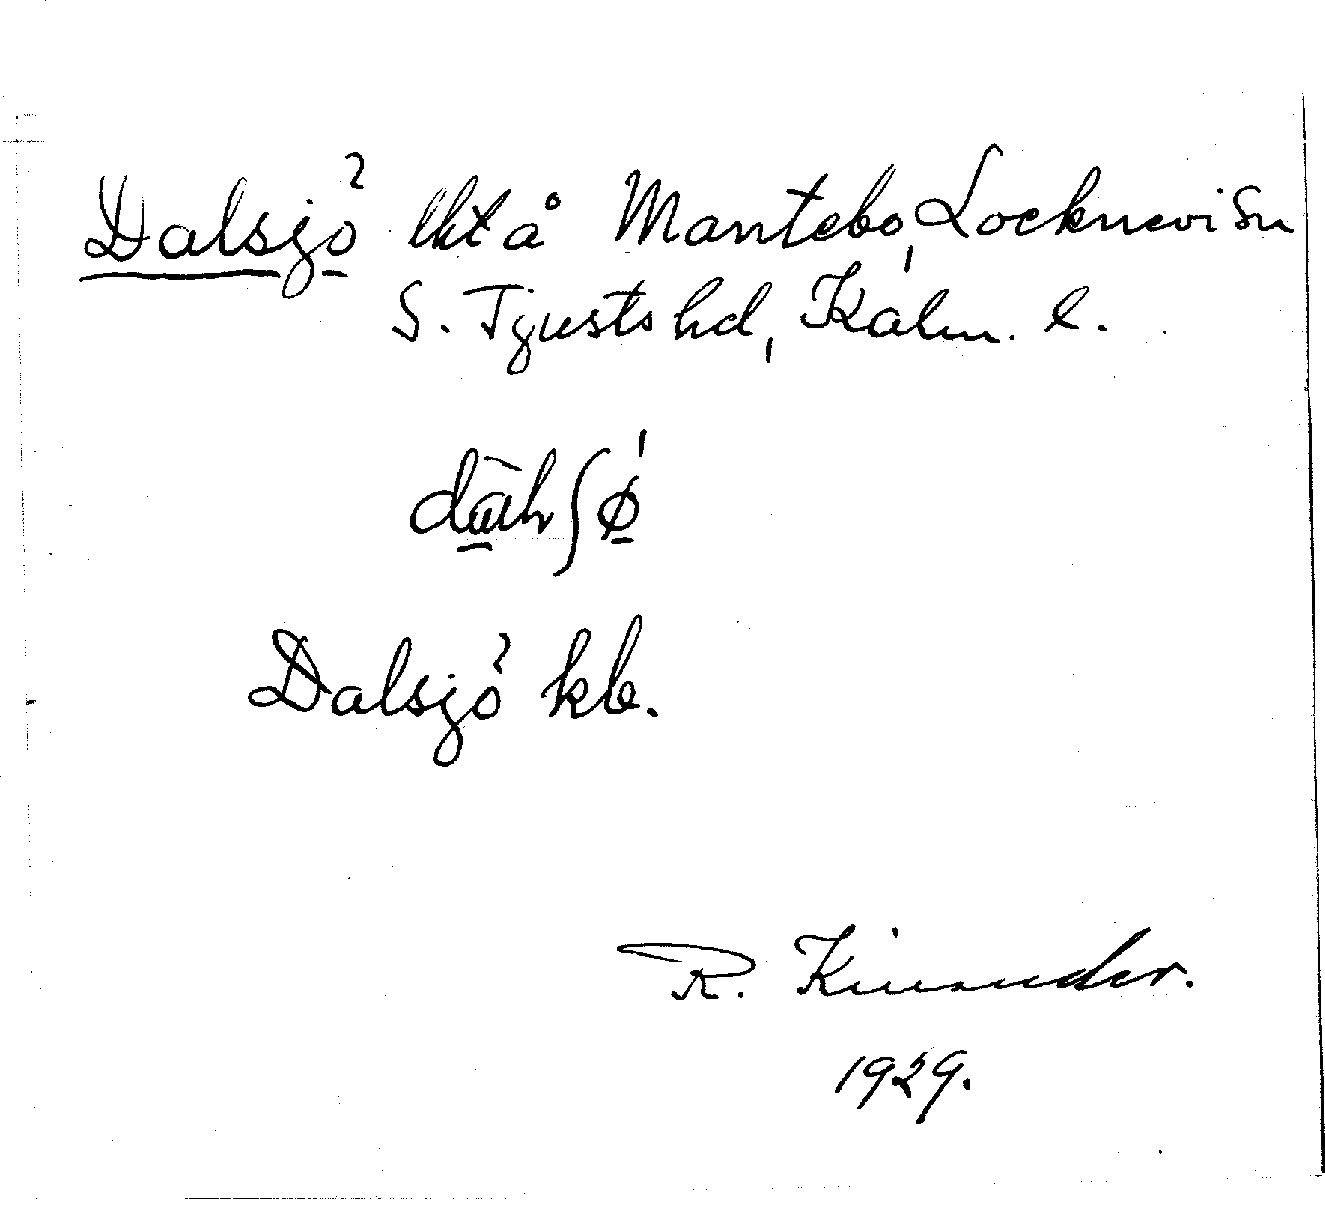 Dalsjö lht å Mantebo, Locknevi Sn
S. Tjusts hd, Kalm. l.
Dalsjö kb.
R. Kinander.
1929.